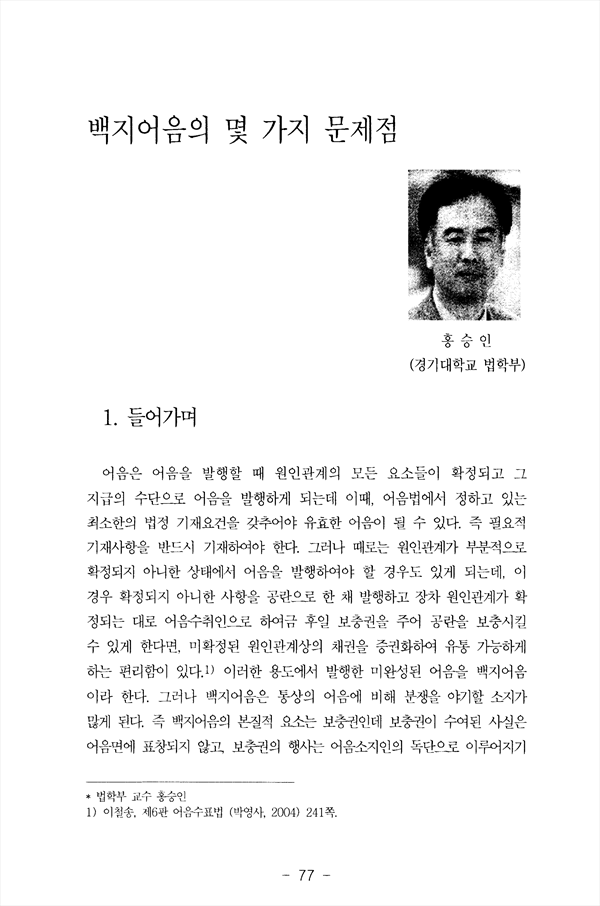 백지어음의 몇 가지 문제점
홍 승 인
(경기대학교 법학부)
1. 들어가며
어음은 어음을 발행할 때 원인관계의 모든 요소들이 확정되고 그
지급의 수단으로 어음을 발행하게 되는데 이때, 어음법에서 정하고 있는
최소한의 법정 기재요건을 갖추어야 유효한 어음이 될 수 있다. 즉 필요적
기재사항을 반드시 기재하여야 한다. 그러나 때로는 원인관계가 부분적으로
확정되지 아니한 상태에서 어음을 발행하여야 할 경우도 있게 되는데, 이
경우 확정되지 아니한 사항을 공란으로 한 채 발행하고 장차 원인관계가 확
정되는 대로 어음수취인으로 하여금 후일 보충권을 주어 공란을 보충시킬
수 있게 한다면, 미확정된 원인관계상의 채권을 증권화하여 유통 가능하게
하는 편리함이 있다.1) 이러한 용도에서 발행한 미완성된 어음을 백지어음
이라 한다. 그러나 백지어음은 통상의 어음에 비해 분쟁을 야기할 소지가
많게 된다. 즉 백지어음의 본질적 요소는 보충권인데 보충권이 수여된 사실은
어음면에 표창되지 않고, 보충권의 행사는 어음소지인의 독단으로 이루어지기
* 법학부 교수 홍승인
1) 이철송, 제6판 어음수표법 (박영사, 2004) 241쪽.
- 77 -